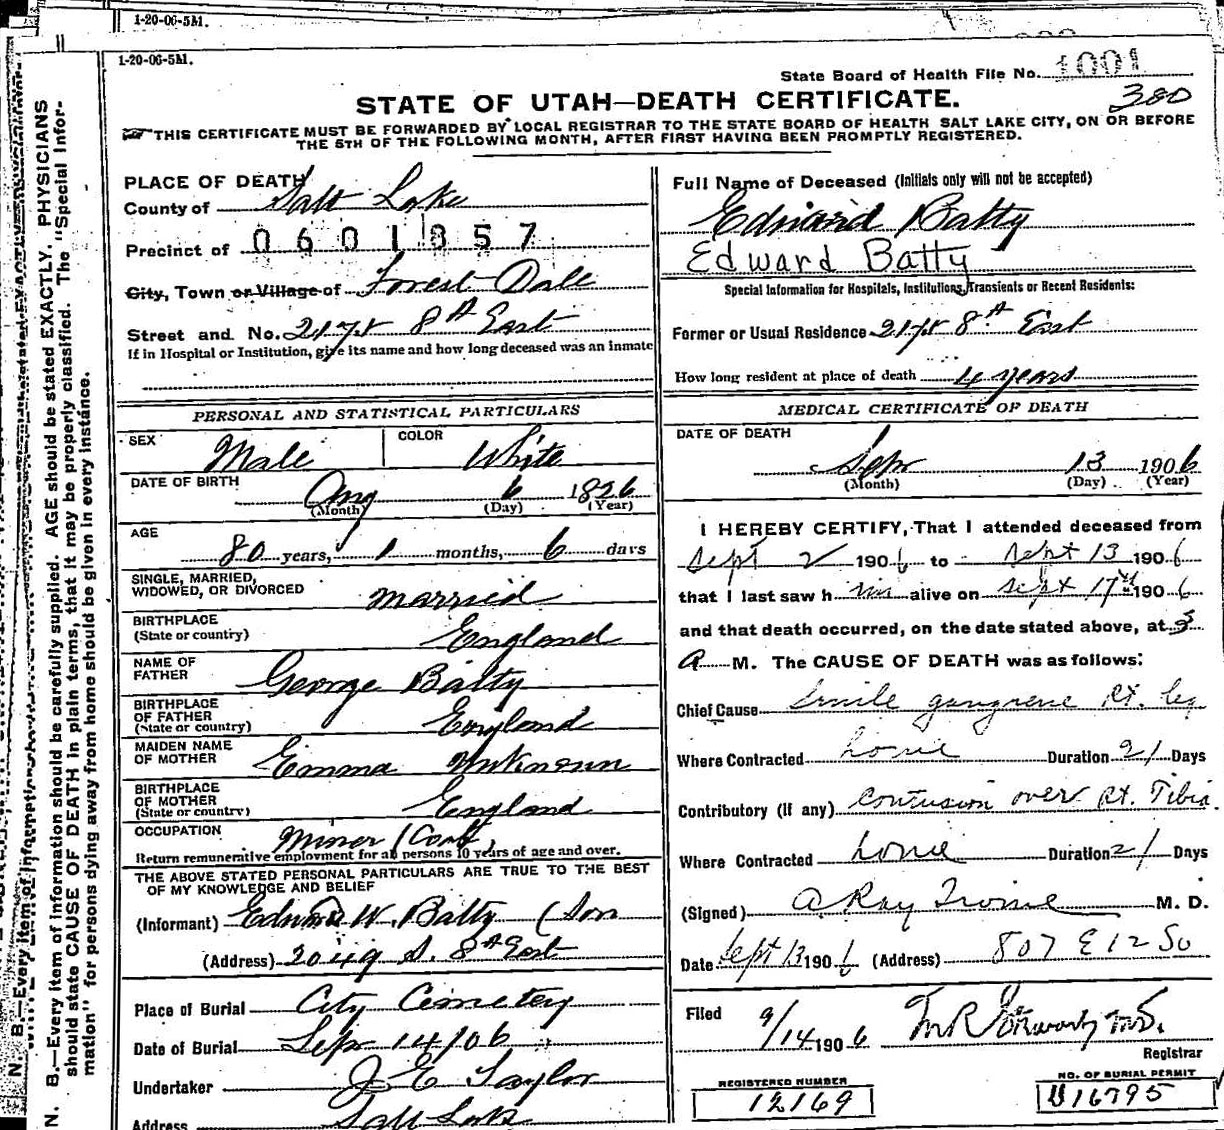 1-20-06-5M.
1-20-06-5M.
State Board of Health File No. 1001
380
STATE OF UTAH—DEATH CERTIFICATE.
THIS CERTIFICATE MUST BE FORWARDED BY LOCAL REGISTRAR TO THE STATE BOARD OF HEALTH SALT LAKE CITY, ON OR BEFORE
THE 5TH OF THE FOLLOWING MONTH, AFTER FIRST HAVING BEEN PROMPTLY REGISTERED.
N. B.—Every item of information should be carefully supplied. AGE should be stated EXACTLY. PHYSICIANS
should state CAUSE OF DEATH in plain terms, that it may be properly classified. The "Special Infor-
mation" for persons dying away from home should be given in every instance.
PLACE OF DEATH
County of Salt Lake
Precinct of 0601857
City, Town or Village of Forest Dale
Street and No. 8th East
If in Hospital or Institution, give its name and how long deceased was an inmate
PERSONAL AND STATISTICAL PARTICULARS
SEX Male COLOR White
DATE OF BIRTH Aug 6 1826
(Month) (Day) (Year)
AGE
80 years, 1 months, 6 days
SINGLE, MARRIED,
WIDOWED, OR DIVORCED married
BIRTHPLACE
(State or country) England
NAME OF
FATHER George Batty
BIRTHPLACE
OF FATHER
(State or country) England
MAIDEN NAME
OF MOTHER Emma
BIRTHPLACE
OF MOTHER
(State or country) England
OCCUPATION Miner (Coal)
Return remunerative employment for all persons 10 years of age and over.
THE ABOVE STATED PERSONAL PARTICULARS ARE TRUE TO THE BEST
OF MY KNOWLEDGE AND BELIEF
(Informant) Edward W. Batty (Son
(Address) 2049 S. 8th East
Place of Burial City Cemetery
Date of Burial Sep 14/06
Undertaker J E Taylor
Address Salt Lake
Full Name of Deceased (Initials only will not be accepted)
Edward Batty
Edward Batty
Special Information for Hospitals, Institutions, Transients or Recent Residents:
Former or Usual Residence 8th East
How long resident at place of death 4 years
MEDICAL CERTIFICATE OF DEATH
DATE OF DEATH
Sep 13 1906
(Month) (Day) (Year)
I HEREBY CERTIFY, That I attended deceased from
Sept 2 1906 to Sept 13 1906
that I last saw him alive on Sept 1906
and that death occurred, on the date stated above, at 3
A M. The CAUSE OF DEATH was as follows:
Chief Cause Senile gangrene Rt. leg
Where Contracted home Duration 21 Days
Contributory (if any) Contusion over Rt. Tibia
Where Contracted home Duration 21 Days
(Signed) A Ray Irvine M. D.
Date Sept 13 1906 (Address) 807 E 12 So
Filed 9/14 1906
Registrar
REGISTERED NUMBER
12169
NO. OF BURIAL PERMIT
U16795